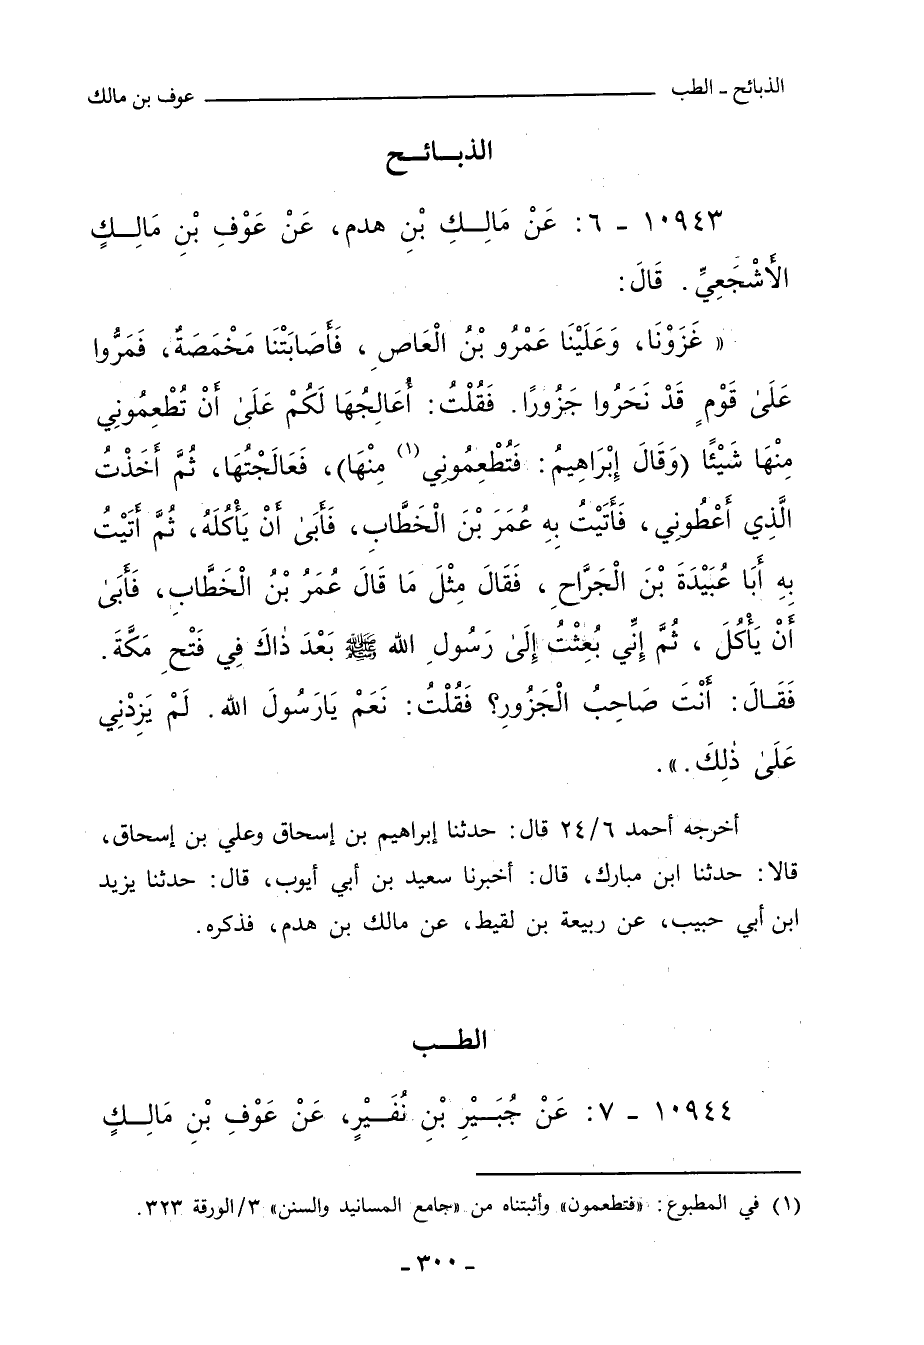 الذبائح - الطب ــــــــ عوف بن مالك
الذبــائــح
١٠٩٤٣ - ٦: عَنْ مَالِــكِ بْنِ هدم، عَنْ عَوْفِ بْنِ مَالِــكٍ
الأَشْجَعِيِّ. قَالَ:
« غَزَوْنَا، وَعَلَيْنَا عَمْرُو بْنُ الْعَاصِ، فَأَصَابَتْنَا مَخْمَصَةٌ، فَمَرُّوا
عَلَىٰ قَوْمٍ قَدْ نَحَرُوا جَزُورًا. فَقُلْتُ: أُعَالِجُهَا لَكُمْ عَلَىٰ أَنْ تُطْعِمُونِي
مِنْهَا شَيْئًا (وَقَالَ إِبْرَاهِيمُ: فَتُطْعِمُونِي(١) مِنْهَا)، فَعَالَجْتُهَا، ثُمَّ أَخَذْتُ
الَّذِي أَعْطُونِي، فَأَتَيْتُ بِهِ عُمَرَ بْنَ الْخَطَّابِ، فَأَبَىٰ أَنْ يَأْكُلَهُ، ثُمَّ أَتَيْتُ
بِهِ أَبَا عُبَيْدَةَ بْنَ الْجَرَّاحِ، فَقَالَ مِثْلَ مَا قَالَ عُمَرُ بْنُ الْخَطَّابِ، فَأَبَىٰ
أَنْ يَأْكُلَ، ثُمَّ إِنِّي بُعِثْتُ إِلَىٰ رَسُولِ الله ﷺ بَعْدَ ذٰاكَ فِي فَتْحِ مَكَّةَ.
فَقَـالَ: أَنْتَ صَاحِبُ الْجَزُورِ؟ فَقُلْتُ: نَعَمْ يَارَسُولَ الله. لَمْ يَزِدْنِي
عَلَىٰ ذٰلِكَ.».
أخرجه أحمد ٢٤/٦ قال: حدثنا إبراهيم بن إسحاق وعلي بن إسحاق،
قالا: حدثنا ابن مبارك، قال: أخبرنا سعيد بن أبي أيوب، قال: حدثنا يزيد
ابن أبي حبيب، عن ربيعة بن لقيط، عن مالك بن هدم، فذكره.
الطــب
١٠٩٤٤ - ٧: عَنْ جُبَــيْرِ بْنِ نُفَــيْرٍ، عَنْ عَوْفِ بْنِ مَالِــكٍ
(١) في المطبوع: «فتطعمون» وأثبتناه من «جامع المسانيد والسنن» ٣/الورقة ٣٢٣.
- ٣٠٠ -